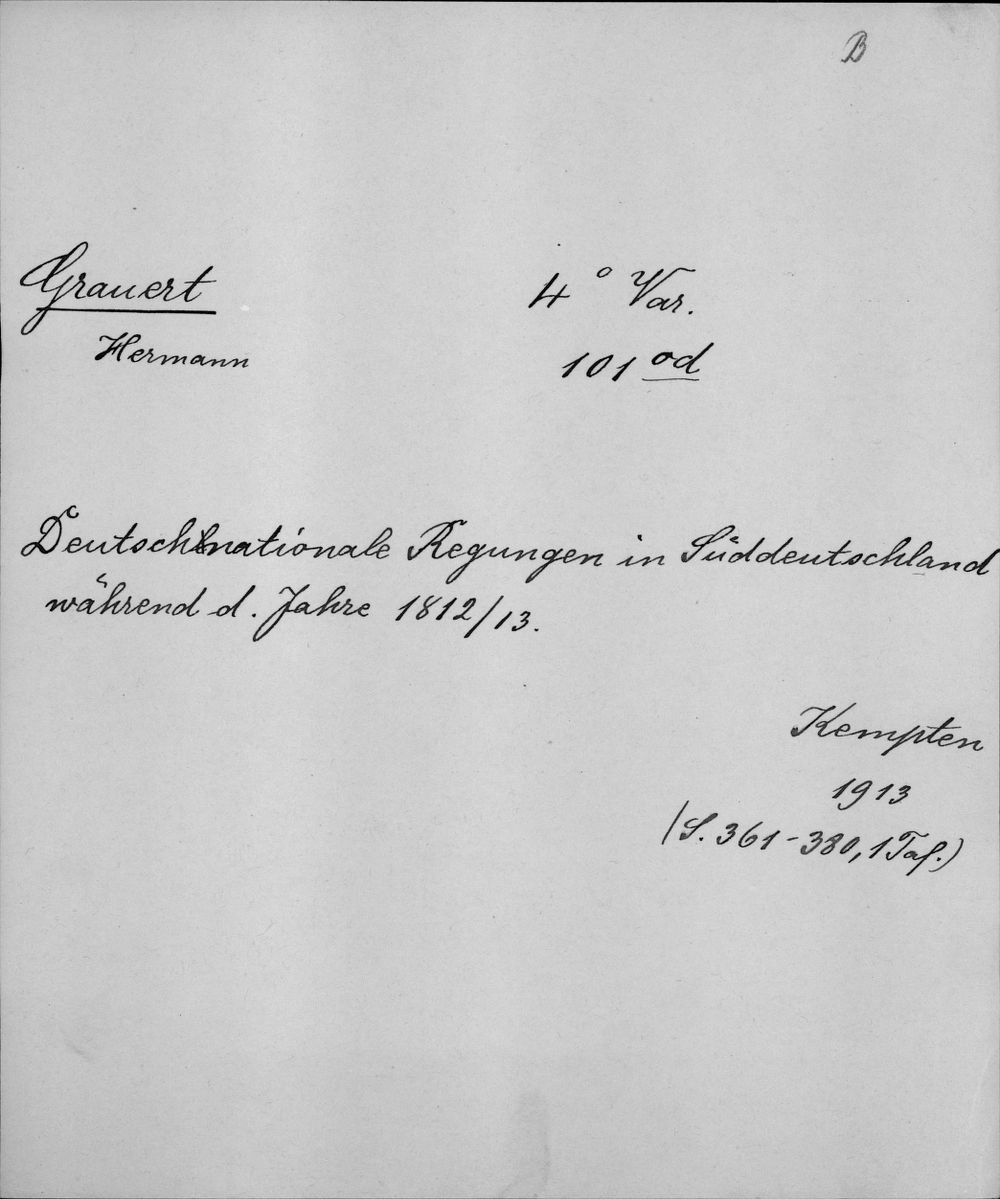 B
Grauert
4° Var.
Hermann
101 od
Deutschnationale Regungen in Süddeutschland
während d. Jahre 1812/13.
Kempten
1913
(S. 361-380, 1 Taf.)